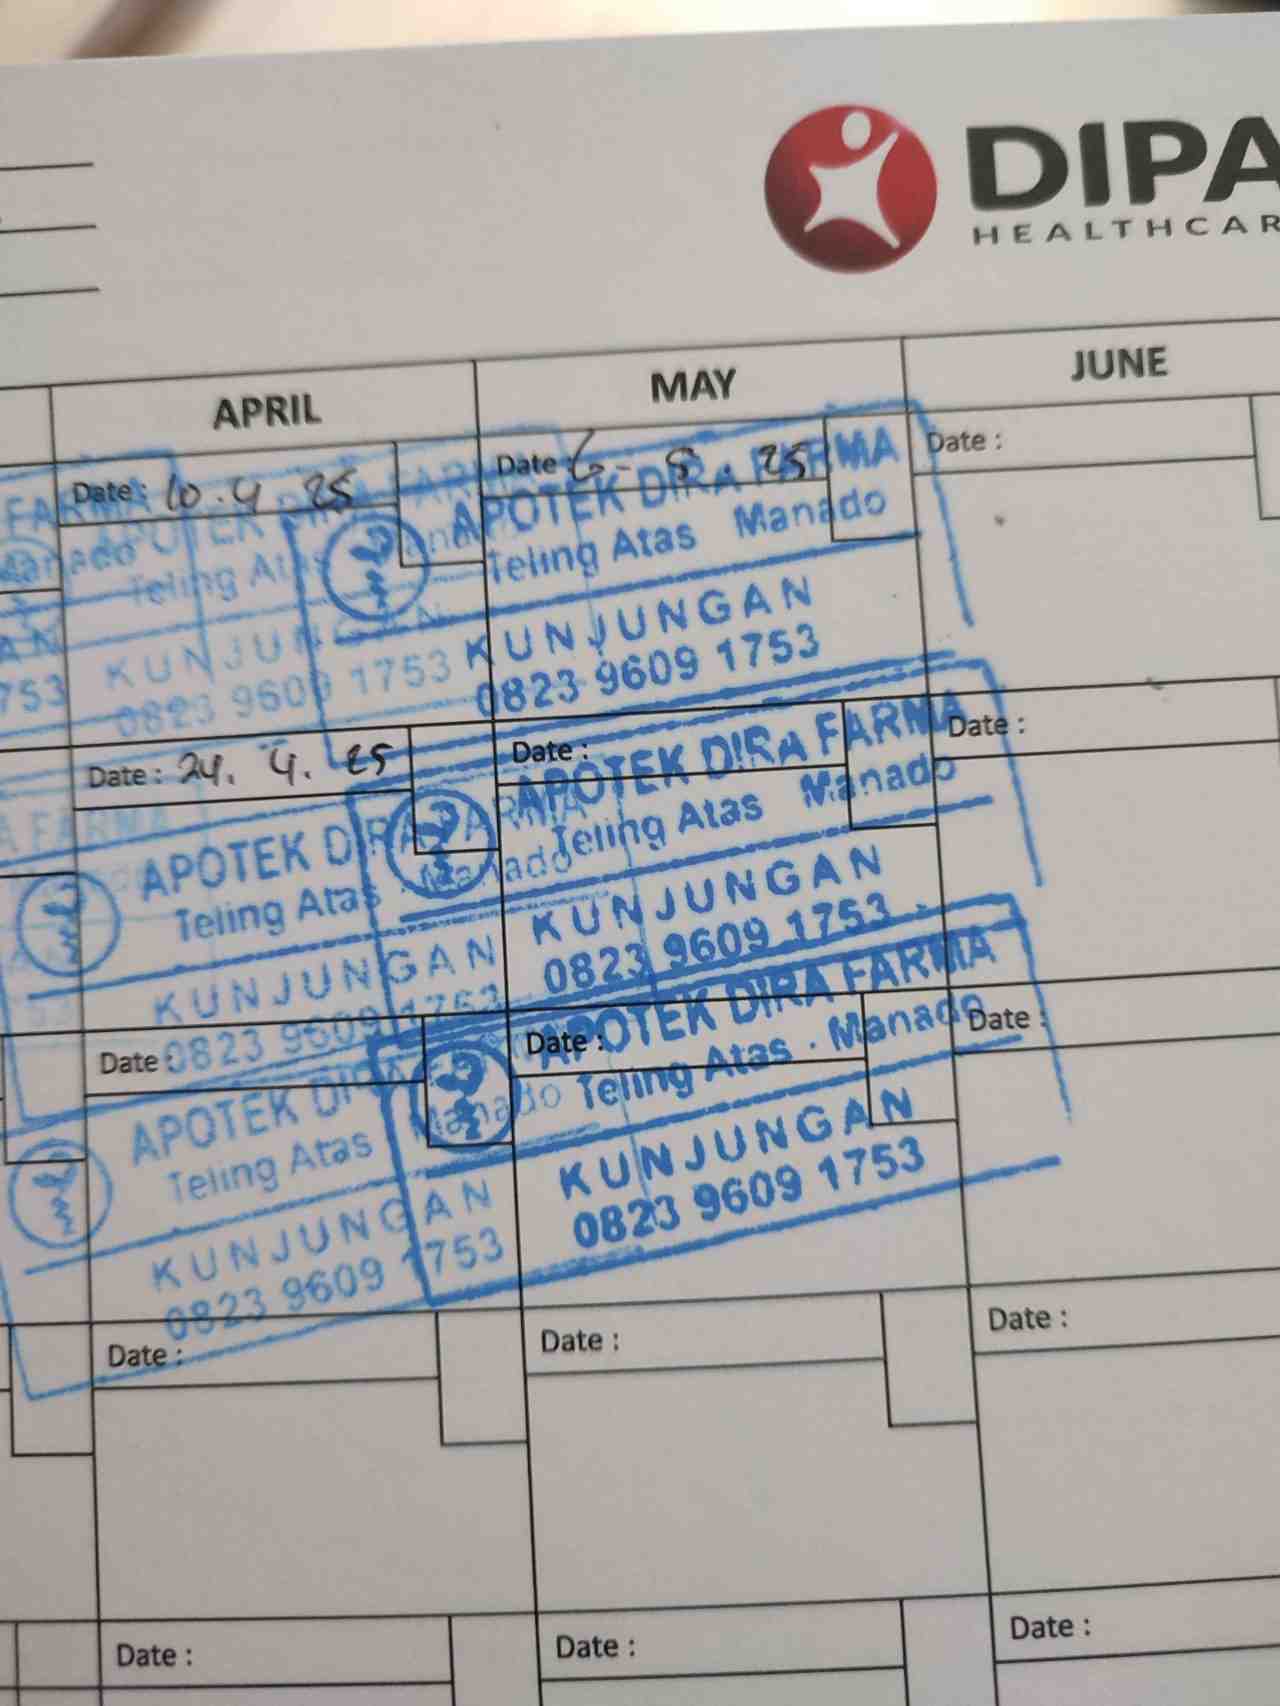 DIPA
HEALTHCAR
APRIL
MAY
JUNE
Date : 10.4 25
Date : 6- 5. 25
Date :
FARMA
APOTEK DIRA FARMA
Teling Atas
KUNJUNGAN
0823 9609 1753
753
APOTEK DIRA FARMA
Teling Atas Manado
KUNJUNGAN
0823 9609 1753
Date : 24. 4. 25
Date :
Date :
A FARMA
APOTEK DIRA FARMA
Teling Atas . Manado
KUNJUNGAN
0823 9609 1753
APOTEK DIRA FARMA
Teling Atas Manado
KUNJUNGAN
0823 9609 1753
Date :
Date :
Date :
APOTEK DIRA
Teling Atas Manado
KUNJUNGAN
0823 9609 1753
APOTEK DIRA FARMA
Teling Atas . Manado
KUNJUNGAN
0823 9609 1753
Date :
Date :
Date :
Date :
Date :
Date :